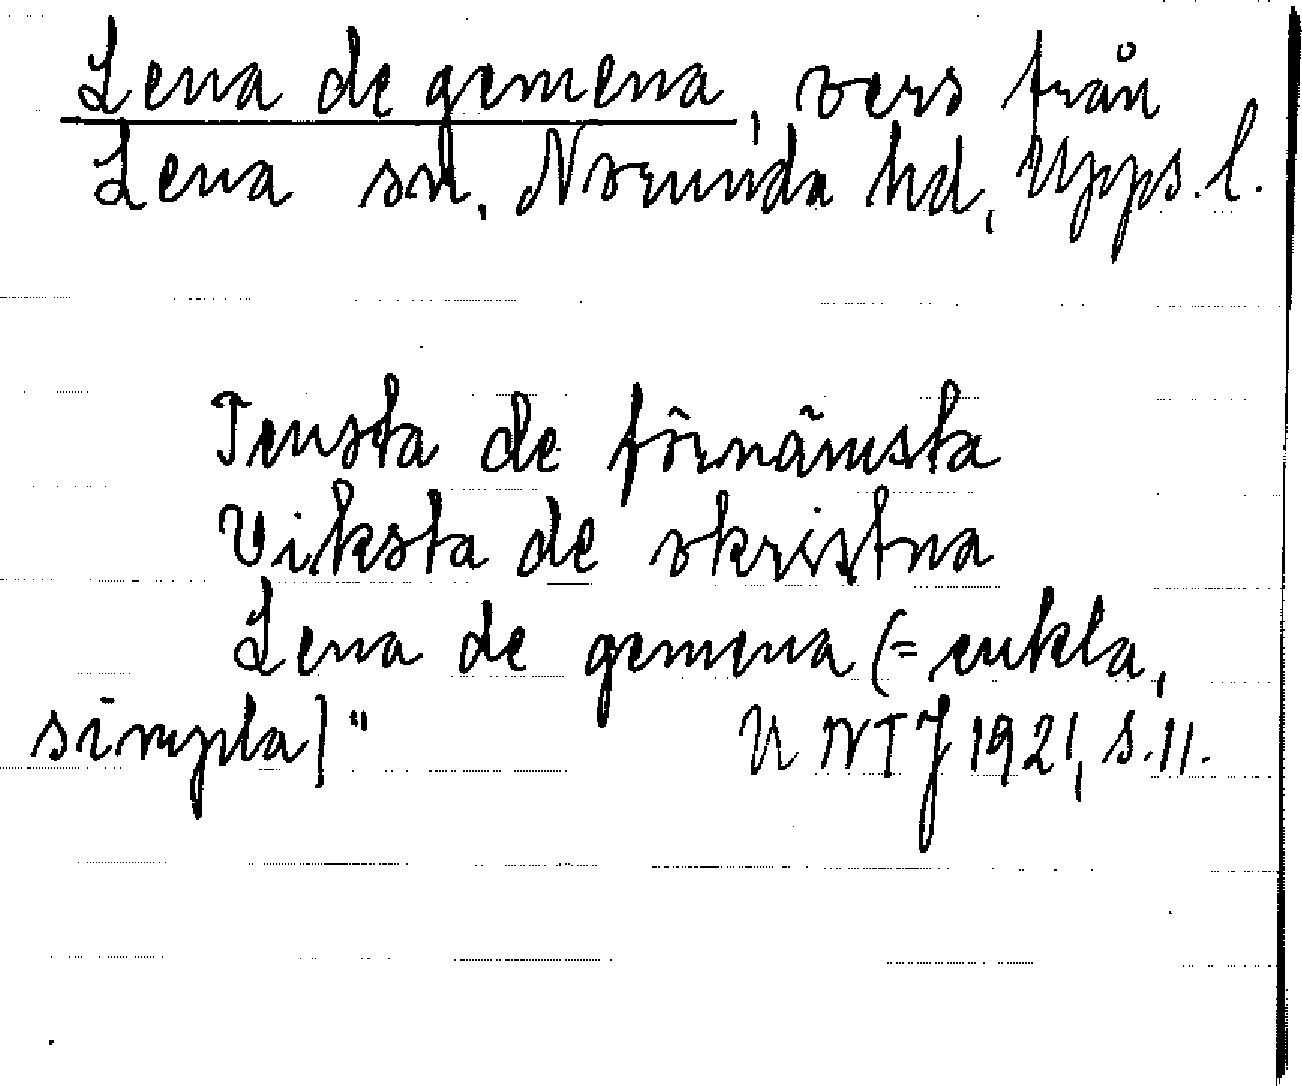 Lena de gemena, vers från
Lena sn, Norunda hd, Upps. l.
Tensta de förnämsta
Viksta de okristna
Lena de gemena (= enkla,
simpla)"
UNTJ 1921, s. 11.